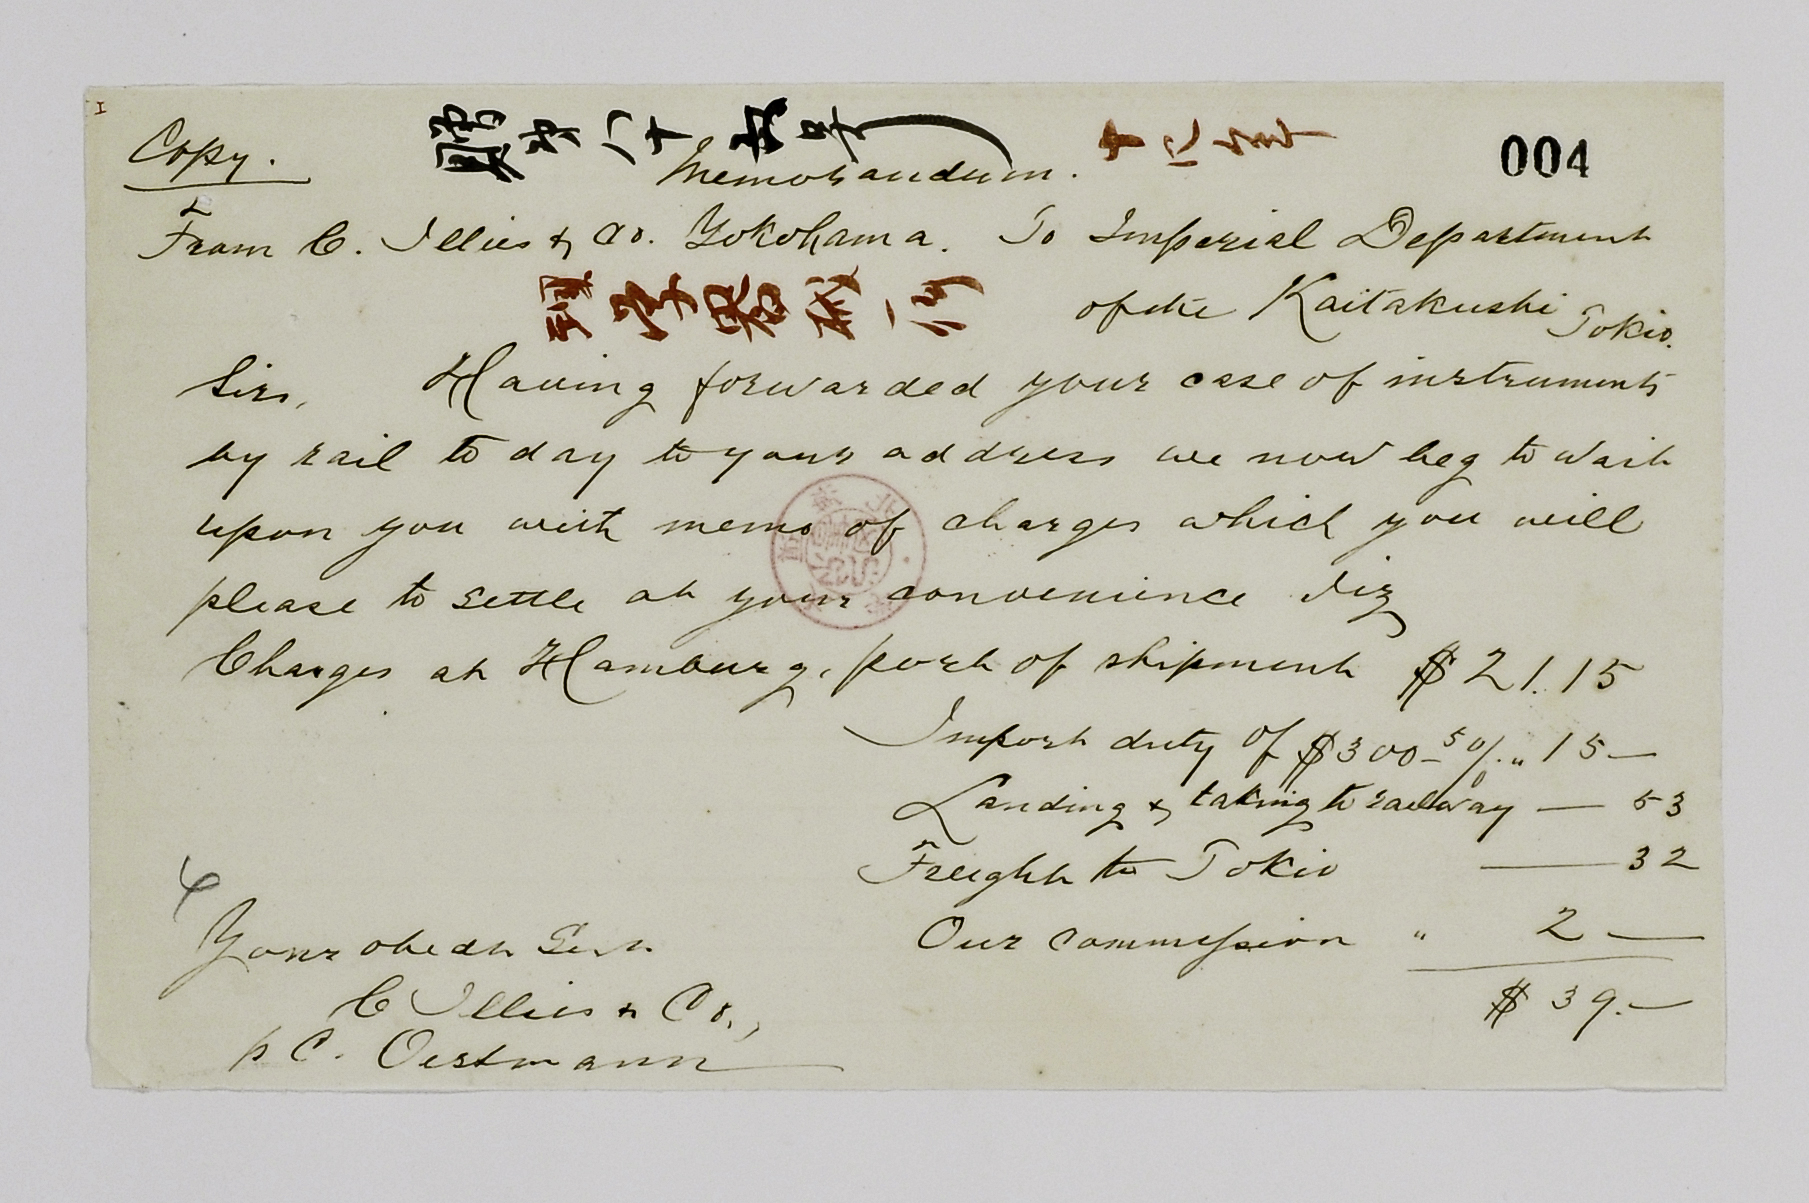 Copy.
004
Memorandum.
From C. Illies & Co. Yokohama. To Imperial Department
of the Kaitakushi Tokio.
Sirs, Having forwarded your case of instruments
by rail to day to your address we now beg to wait
upon you with memo of charges which you will
please to settle at your convenience viz
Charges at Hamburg, port of shipment $ 21.15
Import duty of $300- 5% „ 15—
Landing & taking to railway — 53
Freight to Tokio — 32
Our commission " 2 —
$ 39.—
Your obedt Servt
C Illies & Co.,
p C. Oestmann